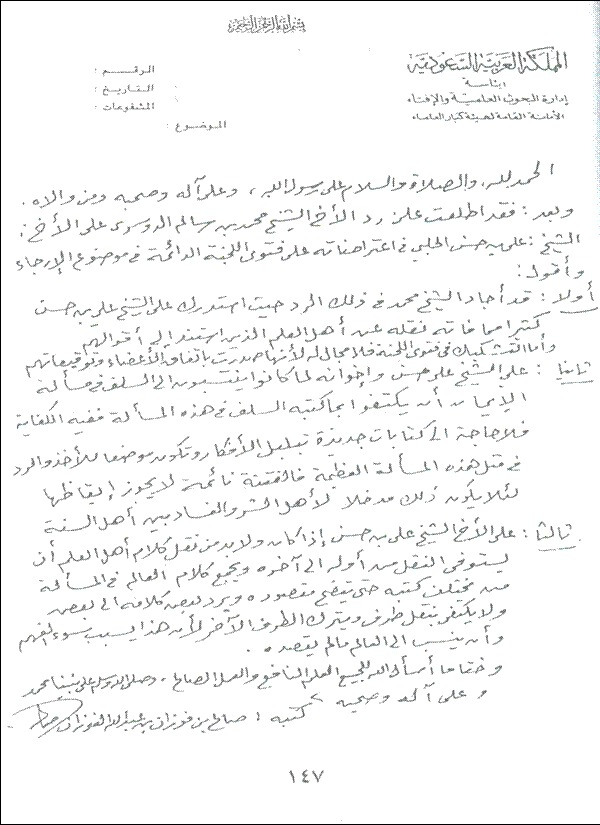 بسم الله الرحمن الرحيم
المملكة العربية السعودية
رئاسة
إدارة البحوث العلمية والإفتاء
الأمانة العامة لهيئة كبار العلماء
الرقـــم :
التـاريـخ :
المشفوعات :
الموضـوع :
الحمد لله، والصلاة والسلام على رسول الله، وعلى آله وصحبه ومن والاه.
وبعد : فقد اطلعت على رد الأخ الشيخ محمد بن سالم الدوسري على الأخ :
الشيخ : علي بن حسن الحلبي في اعتراضاته على فتوى اللجنة الدائمة في موضوع الإرجاء
وأقول :
أولا : قد أجاد الشيخ محمد في ذلك الرد حيث استدرك على الشيخ علي بن حسن
كثيرا مما فاته نقله عن أهل العلم الذين استند إلى أقوالهم
وأما التشكيك في فتوى اللجنة فلا مجال له لأنها صدرت باتفاق الأعضاء وتوقيعاتهم
ثانيا : على الشيخ علي حسن وإخوانه لما كانوا ينتسبون إلى السلف في مسألة
الإيمان أن يكتفوا بما كتبه السلف في هذه المسألة ففيه الكفاية
فلا حاجة إلى كتابات جديدة تبلبل الأفكار وتكون موضعا للأخذ والرد
في مثل هذه المسألة العظيمة فالفتنة نائمة لا يجوز إيقاظها
لئلا يكون ذلك مدخلا لأهل الشر والفساد بين أهل السنة
ثالثا : على الأخ الشيخ علي بن حسن إذا كان ولا بد من نقل كلام أهل العلم أن
يستوفي النقل من أوله إلى آخره ويجمع كلام العالم في المسألة
من مختلف كتبه حتى يتضح مقصوده ويرد بعض كلامه إلى بعض
ولا يكتفي بنقل طرف ويترك الطرف الآخر لأن هذا يسبب سوء الفهم
وأن ينسب إلى العالم مالم يقصده .
وختاما أسأل الله للجميع العلم النافع والعمل الصالح، وصلى الله وسلم على نبينا محمد
وعلى آله وصحبه
كتبه : صالح بن فوزان بن عبد الله الفوزان
١٤٧